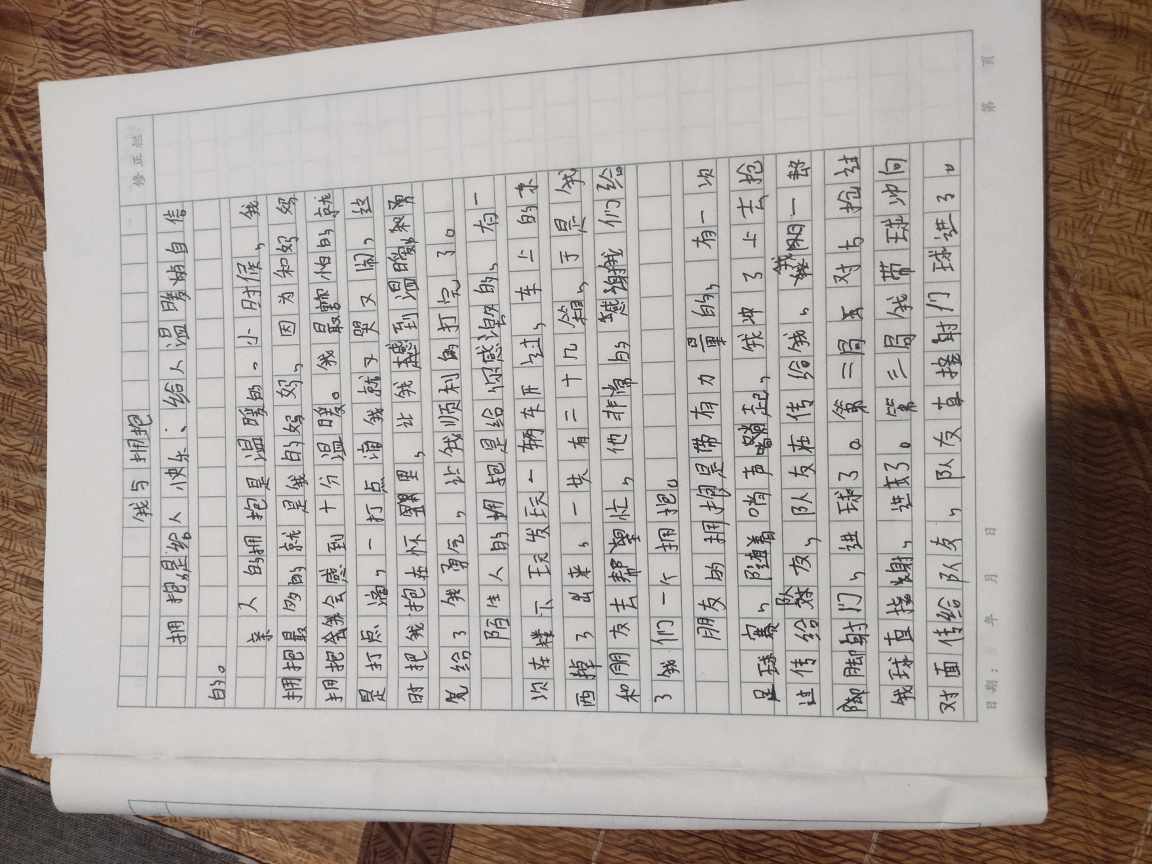 修正栏
我与拥抱
拥抱是给人快乐、给人温暖与自信
的。
亲人的拥抱是温暖的。小时候，我
拥抱最多的就是我的妈妈，因为和妈妈
拥抱会感到十分温暖。我最害怕的就
是打点滴，一打点滴我就又哭又闹，这
时把我抱在怀里，让我感到温暖和勇
气给了我勇气，让我顺利的打完了。
陌生人的拥抱是给你感谢的，有一
次在楼下玩发现一辆车开过，车上的东
西掉了出来，一共有二十几箱，于是我
和朋友去帮忙，他非常的感谢我们给
了我们一个拥抱。
朋友的拥抱是带有力量的，有一次
足球赛，随着哨声响起，我冲了上去抢
过传给队友，队友在传给我，我一帮
脚射门，进球了。第二局对方抢过
我球直接射，进了。第三局我带球冲向
对面传给队友，队友直接射门球进了。
日期： 年 月 日
第 页